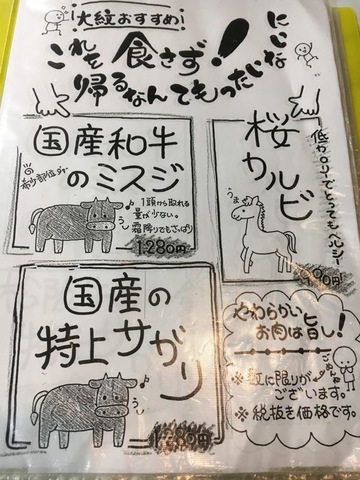 大紋おすすめ
これを食さず!
にいな
帰るなんてもったいな
国産和牛
のミスジ
希少部位ダヨー
1頭から取れる
量が少ない。
霜降りでもさっぱり
うし
1,280円
桜カルビ
低カロリーでとってもヘルシー!
うま
90円
国産の
特上サガリ
うし
やわらかい
お肉は旨し!
※数に限りが
ございます。
※税抜き価格です。
ごめんね